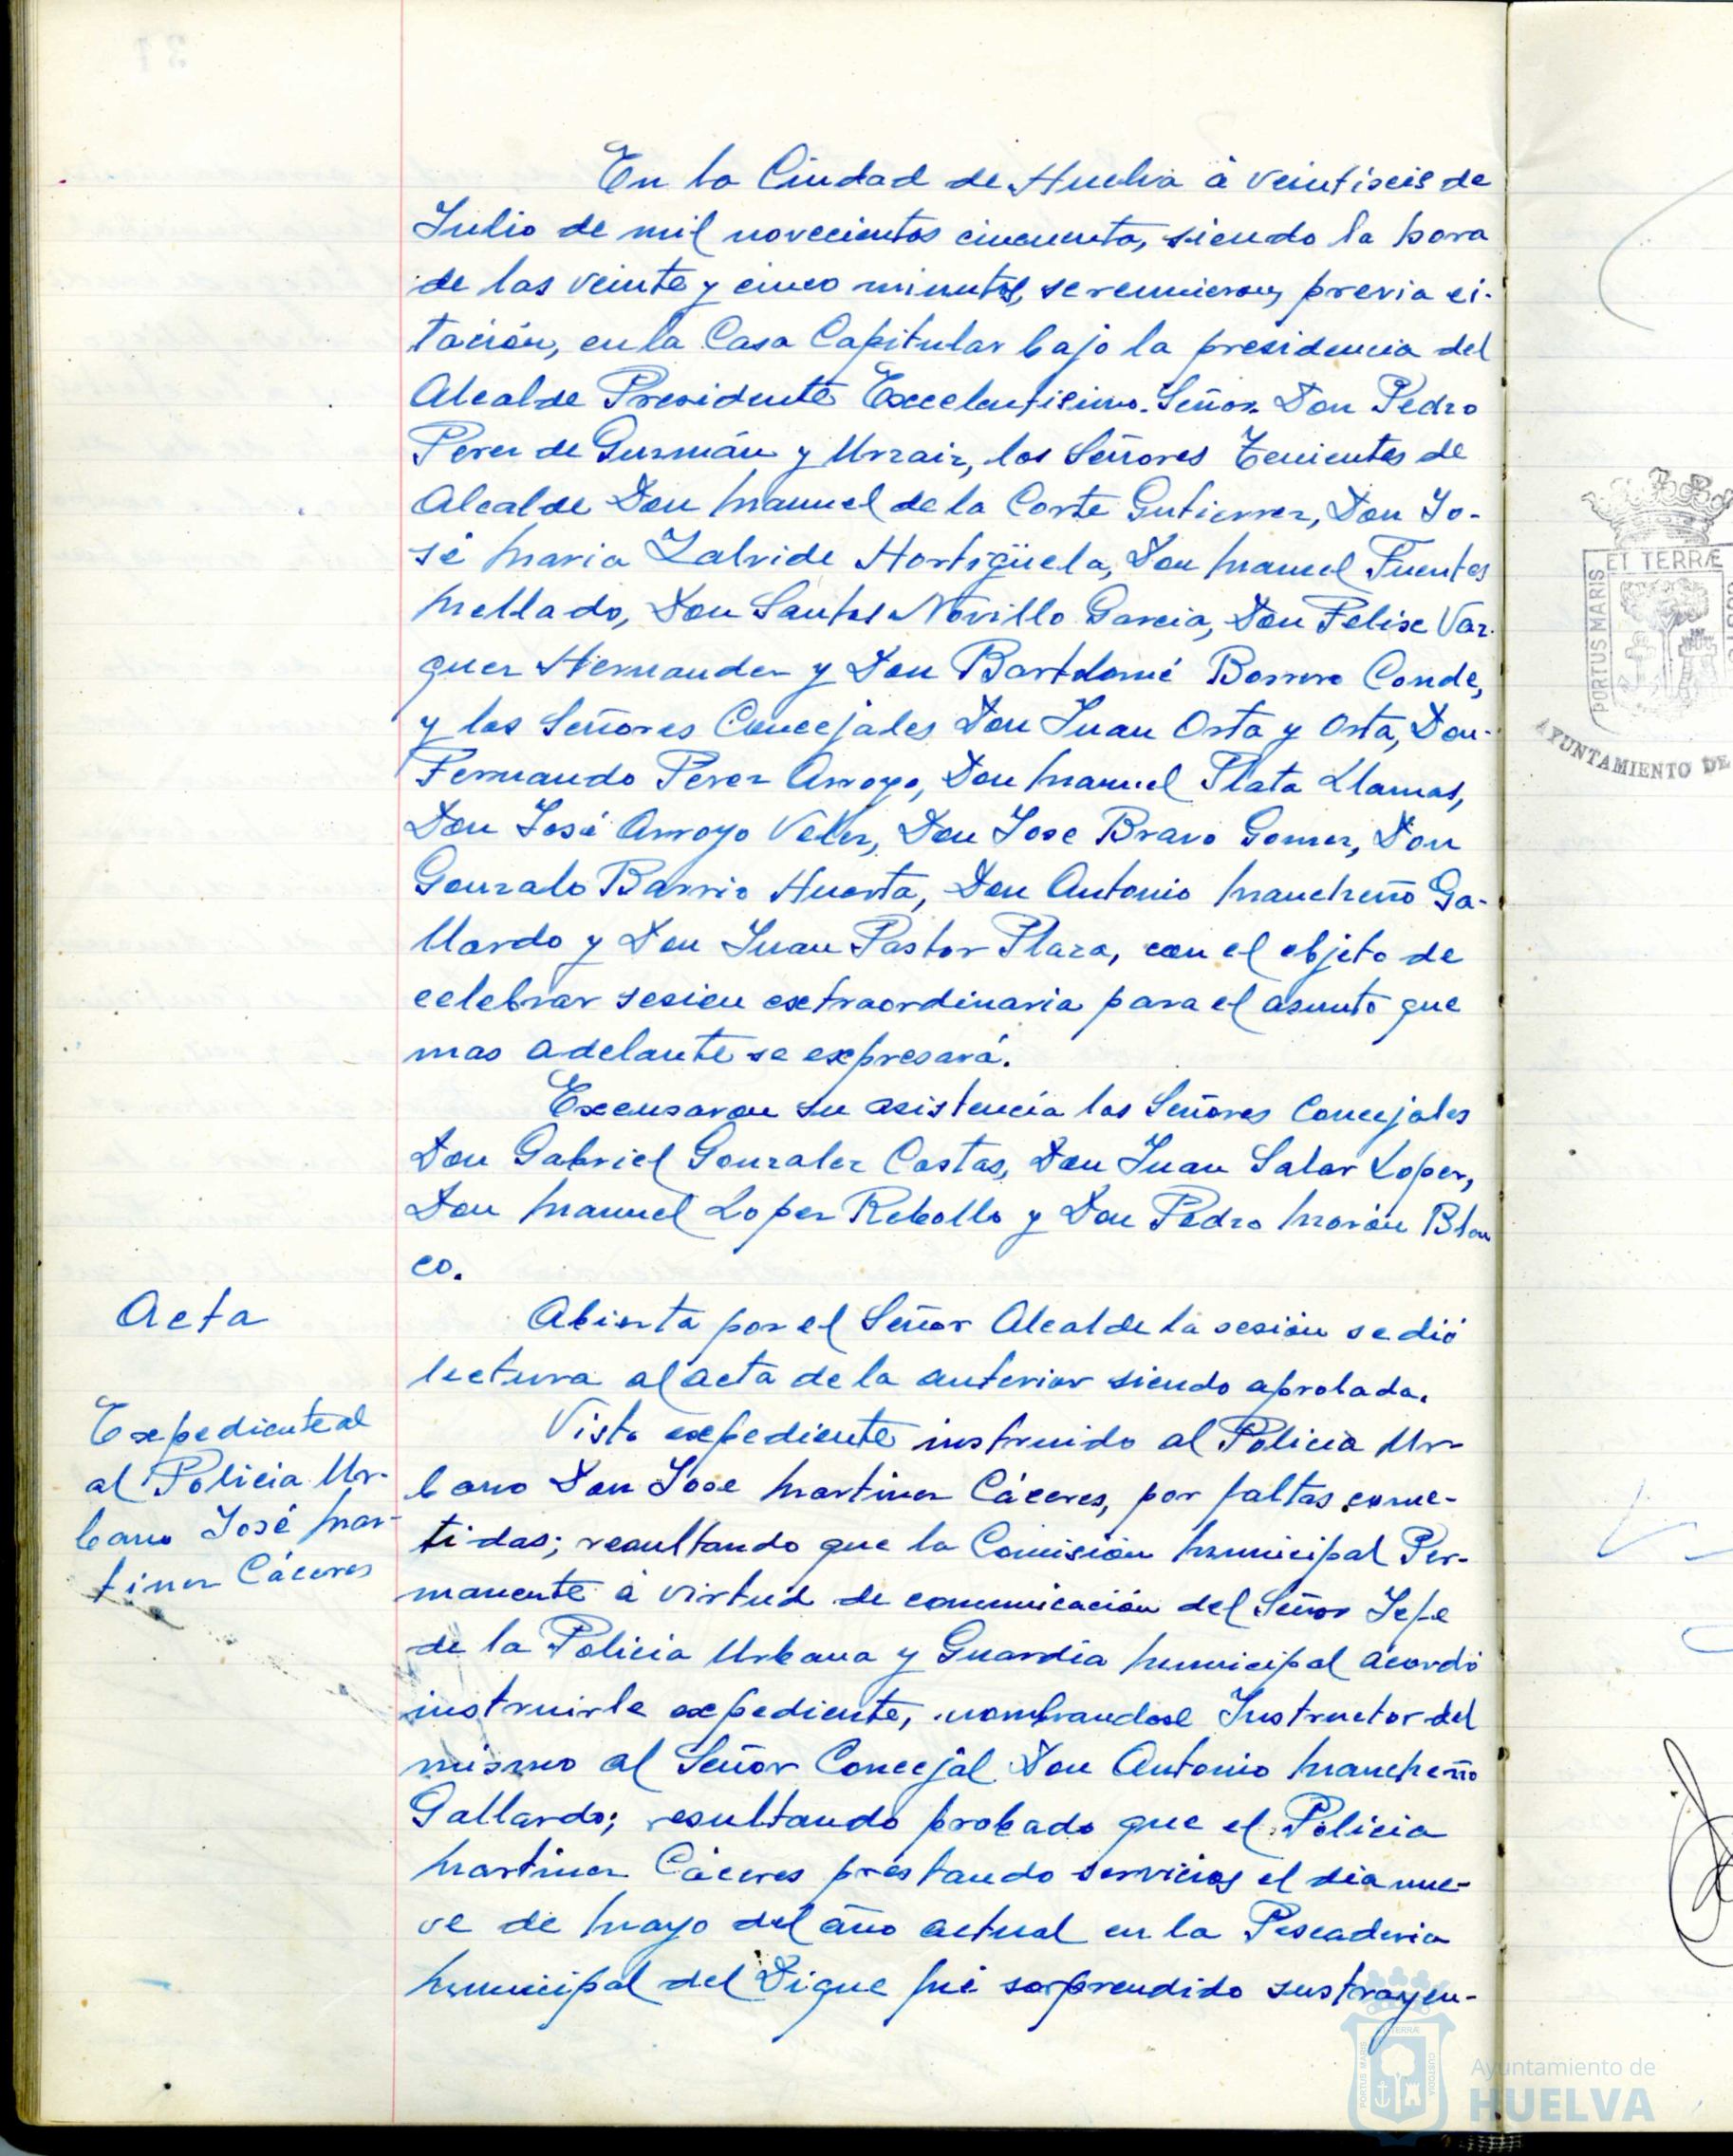 En la Ciudad de Huelva à veintiseis de
Julio de mil novecientos cincuenta, siendo la hora
de las veinte y cinco minutos, se reunieron, previa ci-
tación, en la Casa Capitular bajo la presidencia del
Alcalde Presidente Excelentisimo Señor Don Pedro
Perez de Guzmán y Urzaiz, los Señores Tenientes de
Alcalde Don Manuel de la Corte Gutierrez, Don Jo-
sé Maria Zalvide Hortigüela, Don Manuel Fuentes
Mellado, Don Santos Novillo Garcia, Don Felix Vaz-
quez Hernandez y Don Bartolomé Borrero Conde,
y los Señores Concejales Don Juan Osta y Osta, Don
Fernando Perez Arroyo, Don Manuel Plata Llamas,
Don José Arroyo Velez, Don Jose Bravo Gomez, Don
Gonzalo Barrio Huerta, Don Antonio Mancheño Ga-
llardo y Don Juan Pastor Plaza, con el objeto de
celebrar sesion extraordinaria para el asunto que
mas adelante se expresará.
Excusaron su asistencia los Señores Concejales
Don Gabriel Gonzalez Costas, Don Juan Salar Lopez,
Don Manuel Lopez Rebollo y Don Pedro Morón Blan
co.
Acta
Abierta por el Señor Alcalde la sesión se dió
lectura al acta de la anterior siendo aprobada.
Expediente al
al Policia Ur-
bano José Mar-
tinez Cáceres
Visto expediente instruido al Policia Ur-
bano Don Jose Martinez Cáceres, por faltas come-
tidas; resultando que la Comisión Municipal Per-
manente à virtud de comunicación del Señor Jefe
de la Policia Urbana y Guardia Municipal acordó
instruirle expediente, nombrandose Instructor del
mismo al Señor Concejal Don Antonio Mancheño
Gallardo; resultando probado que el Policia
Martinez Cáceres prestando servicios el dia nue-
ve de Mayo del año actual en la Pescaderia
Municipal del Dique fué sorprendido sustrayen-
PORTUS MARIS
ET TERRÆ
AYUNTAMIENTO DE
Ayuntamiento de
HUELVA